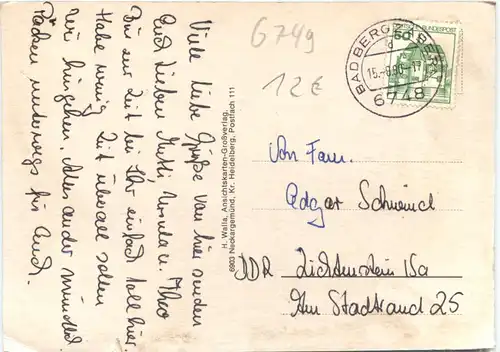 Viele liebe Grüße von hier senden
Euch Lieben Mutti Ursula u. Theo
Bin zur Zeit bei Ihr einfach toll hier.
Habe wenig Zeit überall sollen
wir hingehen. Alles andere mündlich
Päckchen unterwegs für Euch.
H. Walla, Ansichtskarten-Großverlag,
6903 Neckargemünd, Kr. Heidelberg, Postfach 111
6749
12 €
BAD BERGZABERN
15.-8.80-17
6748
DEUTSCHE BUNDESPOST
50
Von Fam.
Edgar Schweind
DDR Lichtenstein Sa
Am Stadtrand 25